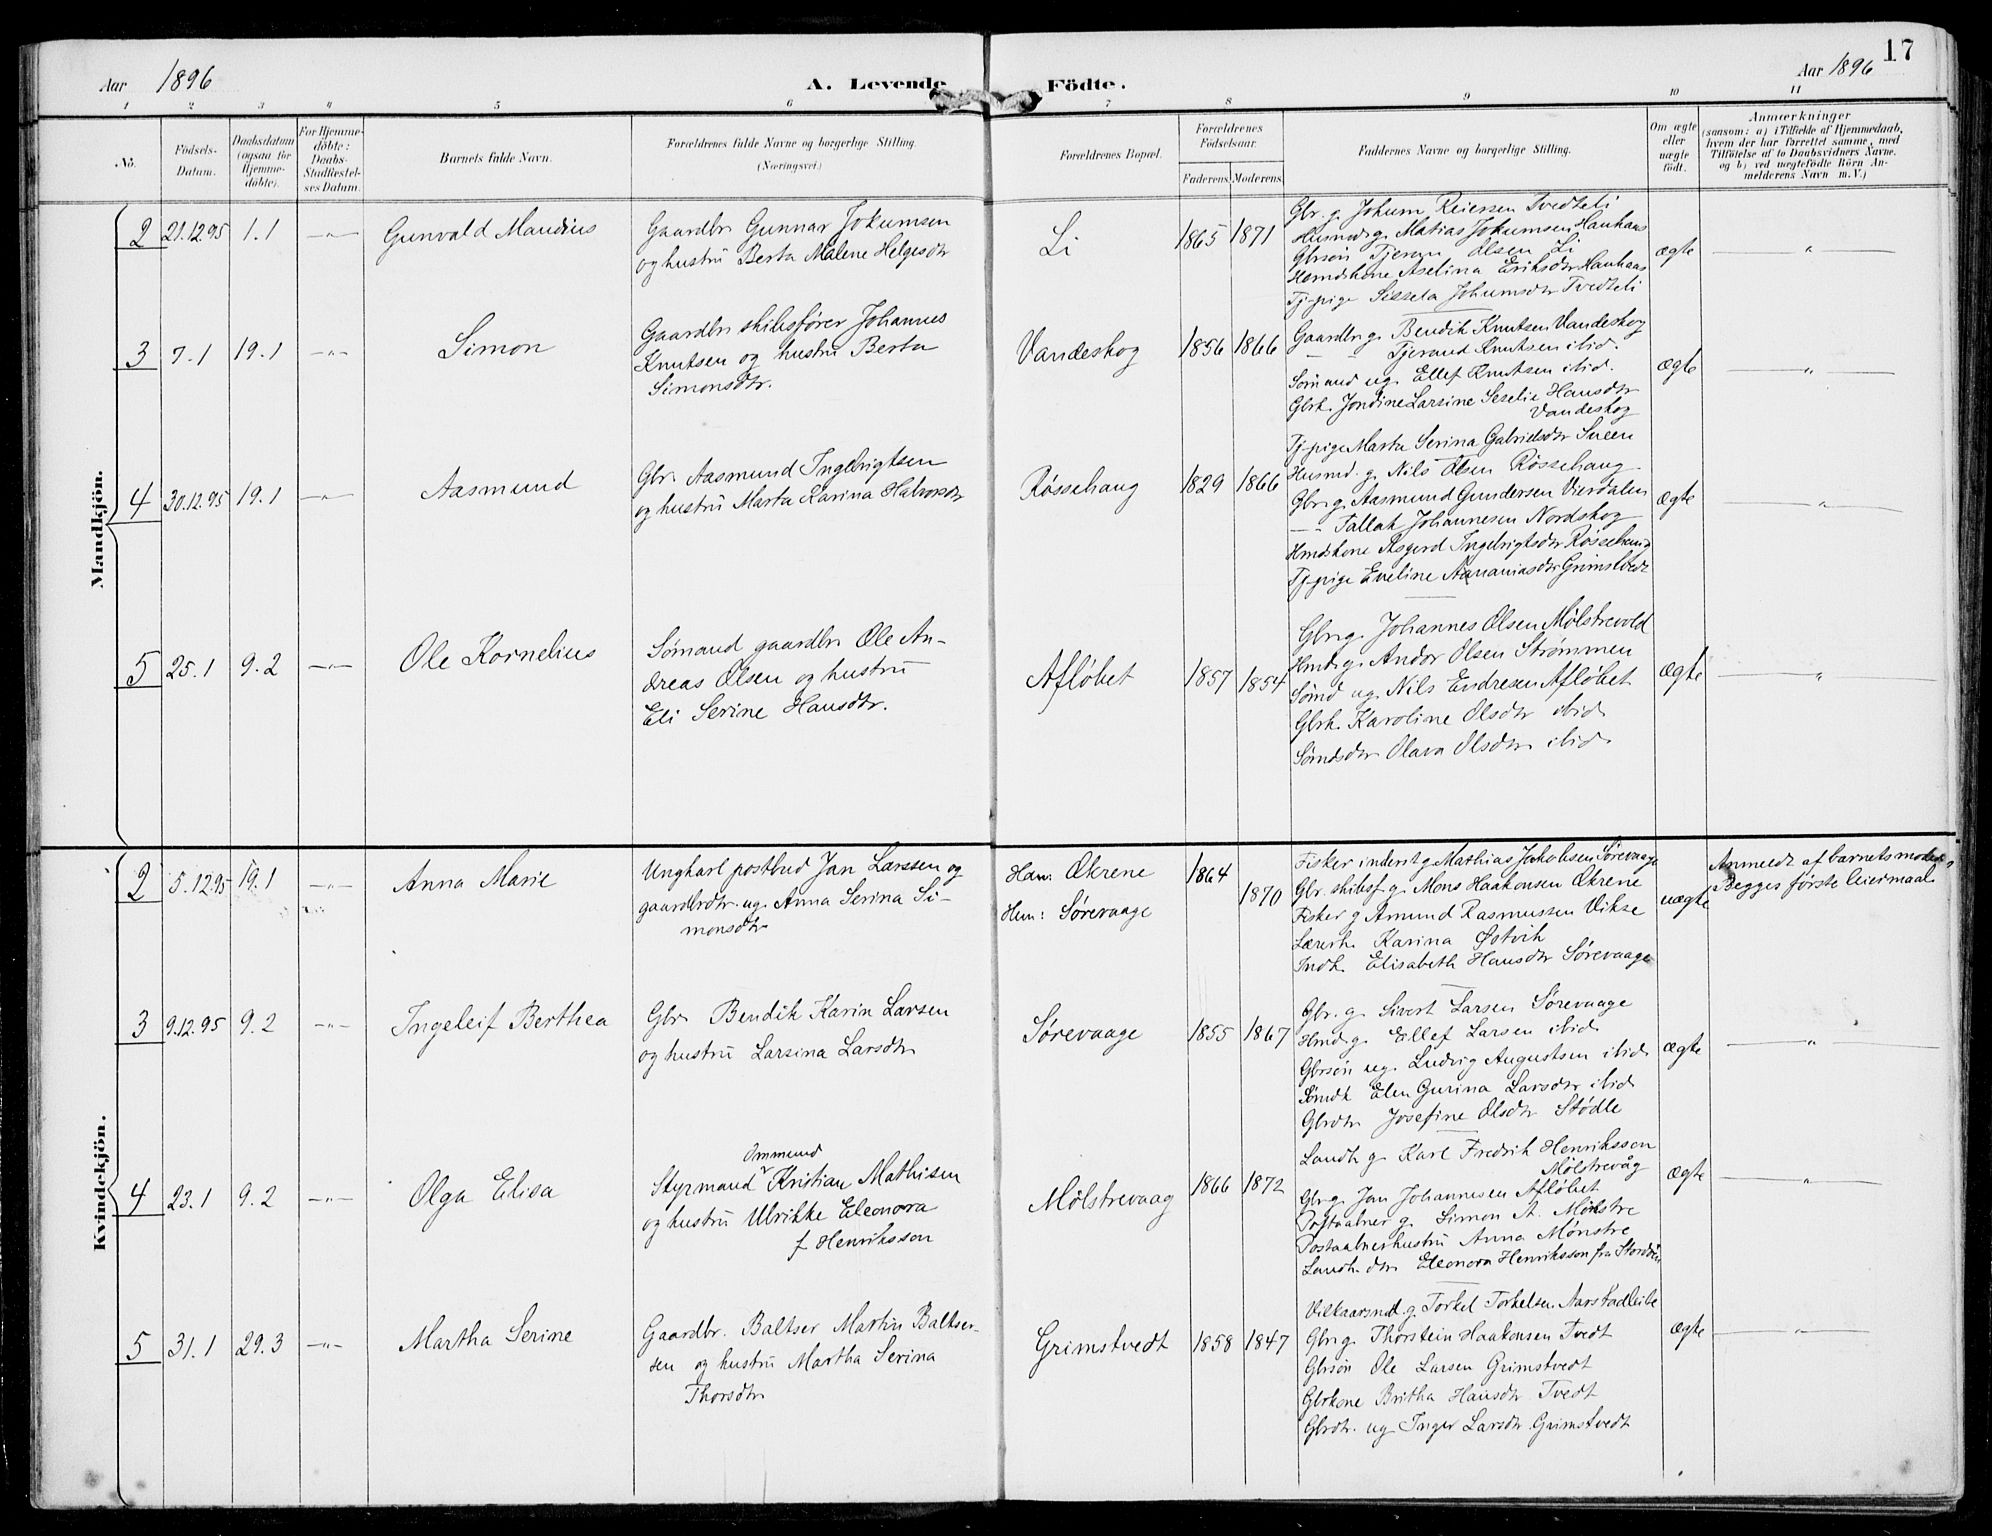 17
Aar 1896 A. Levende Födte. Aar 1896
1 2 3 4 5 6 7 8 9 10 11
No.
Födsels-Datum.
Daabsdatum (ogsaa for Hjemme-döbte).
For Hjemme-döbte: Daabs-Stadfæstel-ses Datum.
Barnets fulde Navn.
Forældrenes fulde Navne og borgerlige Stilling. (Næringsvei.)
Forældrenes Bopæl.
Forældrenes Födselsaar.
Faderens. Moderens.
Faddernes Navne og borgerlige Stilling.
Om ægte eller uægte födt.
Anmærkninger
(saasom: a) i Tilfælde af Hjemmedaab,
hvem der har forrettet samme, med
Tilföielse af to Daabsvidners Navne.
og b) ved uægtefödte Börn An-
melderens Navn m. V.)
Mandkjön.
2 21.12.95 1.1 —"—
Gunvald Maudius
Gaardbr. Gunnar Jokumsen
og hustru Berta Malene Helgesdtr
Li
1865 1871
Gbr. g. Johum Reiersen Tvedteli
Husmd g. Matias Jokumsen Hauhaas
Gbrsön Tjeran Olsen Li
Hsmdskone Aselina Eriksdtr Hauhaas
Tj-pige Sissela Johumsdtr Tvedteli
ægte
—"—
3 7.1 19.1 —"—
Simon
Gaardbr skibsfører Johannes
Knutsen og hustru Berta
Simonsdtr.
Vandeskog
1856 1866
Gaardbr g. Bendik Knutsen Vandeskog
— Tjerand Knutsen ibid.
Sømand ug. Ellef Knutsen ibid.
Gbrk. Jondine Larsine Seselie Hansdtr
Vandeskog
Tj-pige Marta Serina Gabrielsdtr Sveen
ægte
—"—
4 30.12.95 19.1 —"—
Aasmund
Gbr Aasmund Ingebrigtsen
og hustru Marta Karina Halvorsdtr
Røssehaug
1829 1866
Husmd. g. Nils Olsen Røssehaug
Gbr. g. Aasmund Gundersen Vierdalen
— - Tallak Johannesen Nordskog
Hmdskone Asgerd Ingebrigtsdtr Røssehaug
Tj-pige Eveline Aananiasdtr Grimstvedt
ægte
—"—
5 25.1 9.2 —"—
Ole Kornelius
Sømand gaardbr Ole An-
dreas Olsen og hustru
Eli Serine Hansdtr.
Afløbet
1857 1854
Gbr g. Johannes Olsen Mølstrevold
Hmd g. Andor Olsen Strømmen
Sømd ug. Nils Endresen Afløbet
Gbrk. Karoline Olsdtr ibid
Sømdsdtr Olava Olsdtr ibid
ægte
—"—
Kvindekjön.
2 5.12.95 19.1 —"—
Anna Marie
Ungkarl postbud Jan Larssen og
gaardbrdtr. ug. Anna Serina Si-
monsdtr
Han: Økrene
Hun: Sørevaage
1864
1870
Fisker inderst g Mathias Jakobsen Sørevaage
Gbr. skibsf. g. Mons Haakonsen Økrene
Fisker g Amund Rasmussen Vikse
Lærerh. Karina Østvik
Indk. Elisabeth Hansdtr Sørevaage
uægte
Anmeldt af barnets moder
Begges første leiermaal
3 9.12.95 9.2 —"—
Ingeleif Berthea
Gbr Bendik Karin Larsen
og hustru Larsina Larsdtr
Sørevaage
1855 1867
Gbr. g. Sivert Larsen Sørevaage
Hmd g. Ellef Larsen ibid
Gbrsön ug. Ludvig Augustsen ibid
Sømdk Elen Gurina Larsdtr ibid
Gbrdtr Josefine Olsdtr Stødle
ægte
—"—
4 23.1 9.2 —"—
Olga Elisa
Ommund
Styrmand Kristian Mathisen
og hustru Ulrikke Eleonora
f Henriksson
Mølstrevaag
1866 1872
Landh g. Karl Fredrik Henriksson
Mølstrevåg
Gbr g. Jan Johannesen Afløbet
Postaabner g. Simon A. Mønstre
Postaabnerhustru Anna Mønstre
Landh. dtr Eleonora Henriksson fra Stordöen
ægte
—"—
5 31.1 29.3 —"—
Martha Serine
Gaardbr. Baltser Martin Baltser-
sen og hustru Martha Serina
Thorsdtr
Grimstvedt
1858 1847
Vilkaarsmd. g. Torkel Torkelsen Aarstadleite
Gbr g. Thorstein Haakonsen Tvedt
Gbrsön Ole Larsen Grimstvedt
Gbrkone Britha Hansdtr Tvedt
Gbrdtr. ug Inger Larsdtr Grimstvedt
ægte
—"—